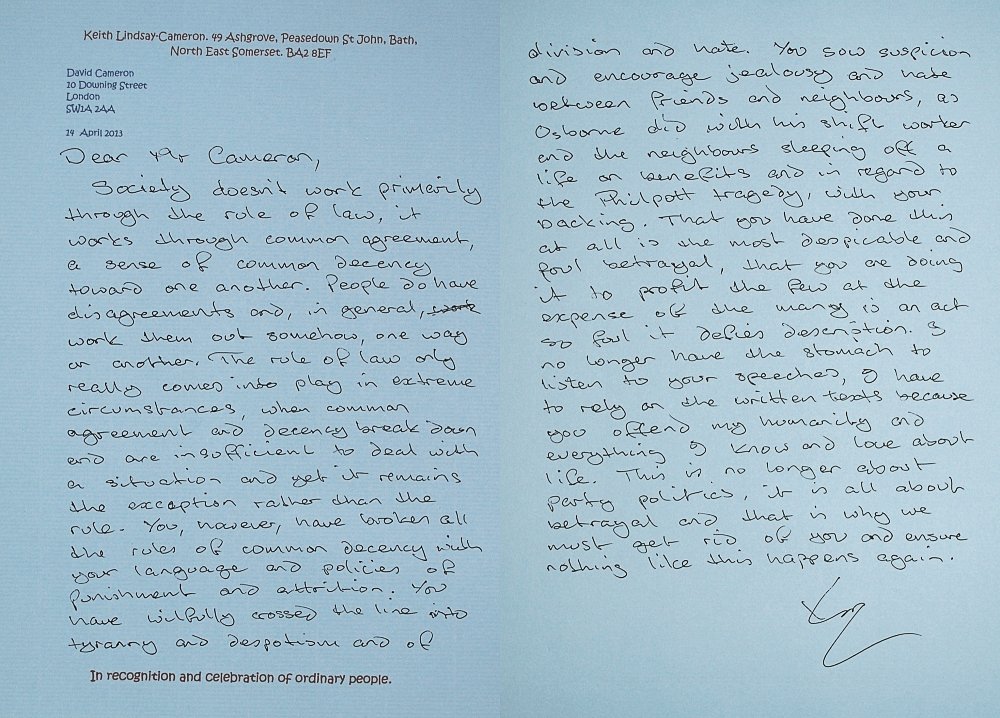 Keith Lindsay-Cameron. 49 Ashgrove, Peasedown St John, Bath,
North East Somerset. BA2 8EF
David Cameron
10 Downing Street
London
SW1A 2AA
14 April 2013
Dear Mr Cameron,
Society doesn't work primarily
through the rule of law, it
works through common agreement,
a sense of common decency
toward one another. People do have
disagreements and, in general, work
work them out somehow, one way
or another. The rule of law only
really comes into play in extreme
circumstances, when common
agreement and decency break down
and are insufficient to deal with
a situation and yet it remains
the exception rather than the
rule. You, however, have broken all
the rules of common decency with
your language and policies of
punishment and attrition. You
have wilfully crossed the line into
tyranny and despotism and of
In recognition and celebration of ordinary people.
division and hate. You sow suspicion
and encourage jealousy and hate
between friends and neighbours, as
Osborne did with his shift worker
and the neighbours sleeping off a
life on benefits and in regard to
the Philpott tragedy, with your
backing. That you have done this
at all is the most despicable and
foul betrayal, that you are doing
it to profit the few at the
expense of the many is an act
so foul it defies description. I
no longer have the stomach to
listen to your speeches, I have
to rely on the written texts because
you offend my humanity and
everything I know and love about
life. This is no longer about
party politics, it is all about
betrayal and that is why we
must get rid of you and ensure
nothing like this happens again.